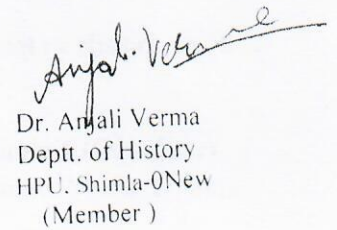 Anjali Verma
Dr. Anjali Verma
Deptt. of History
HPU. Shimla-0New
(Member )